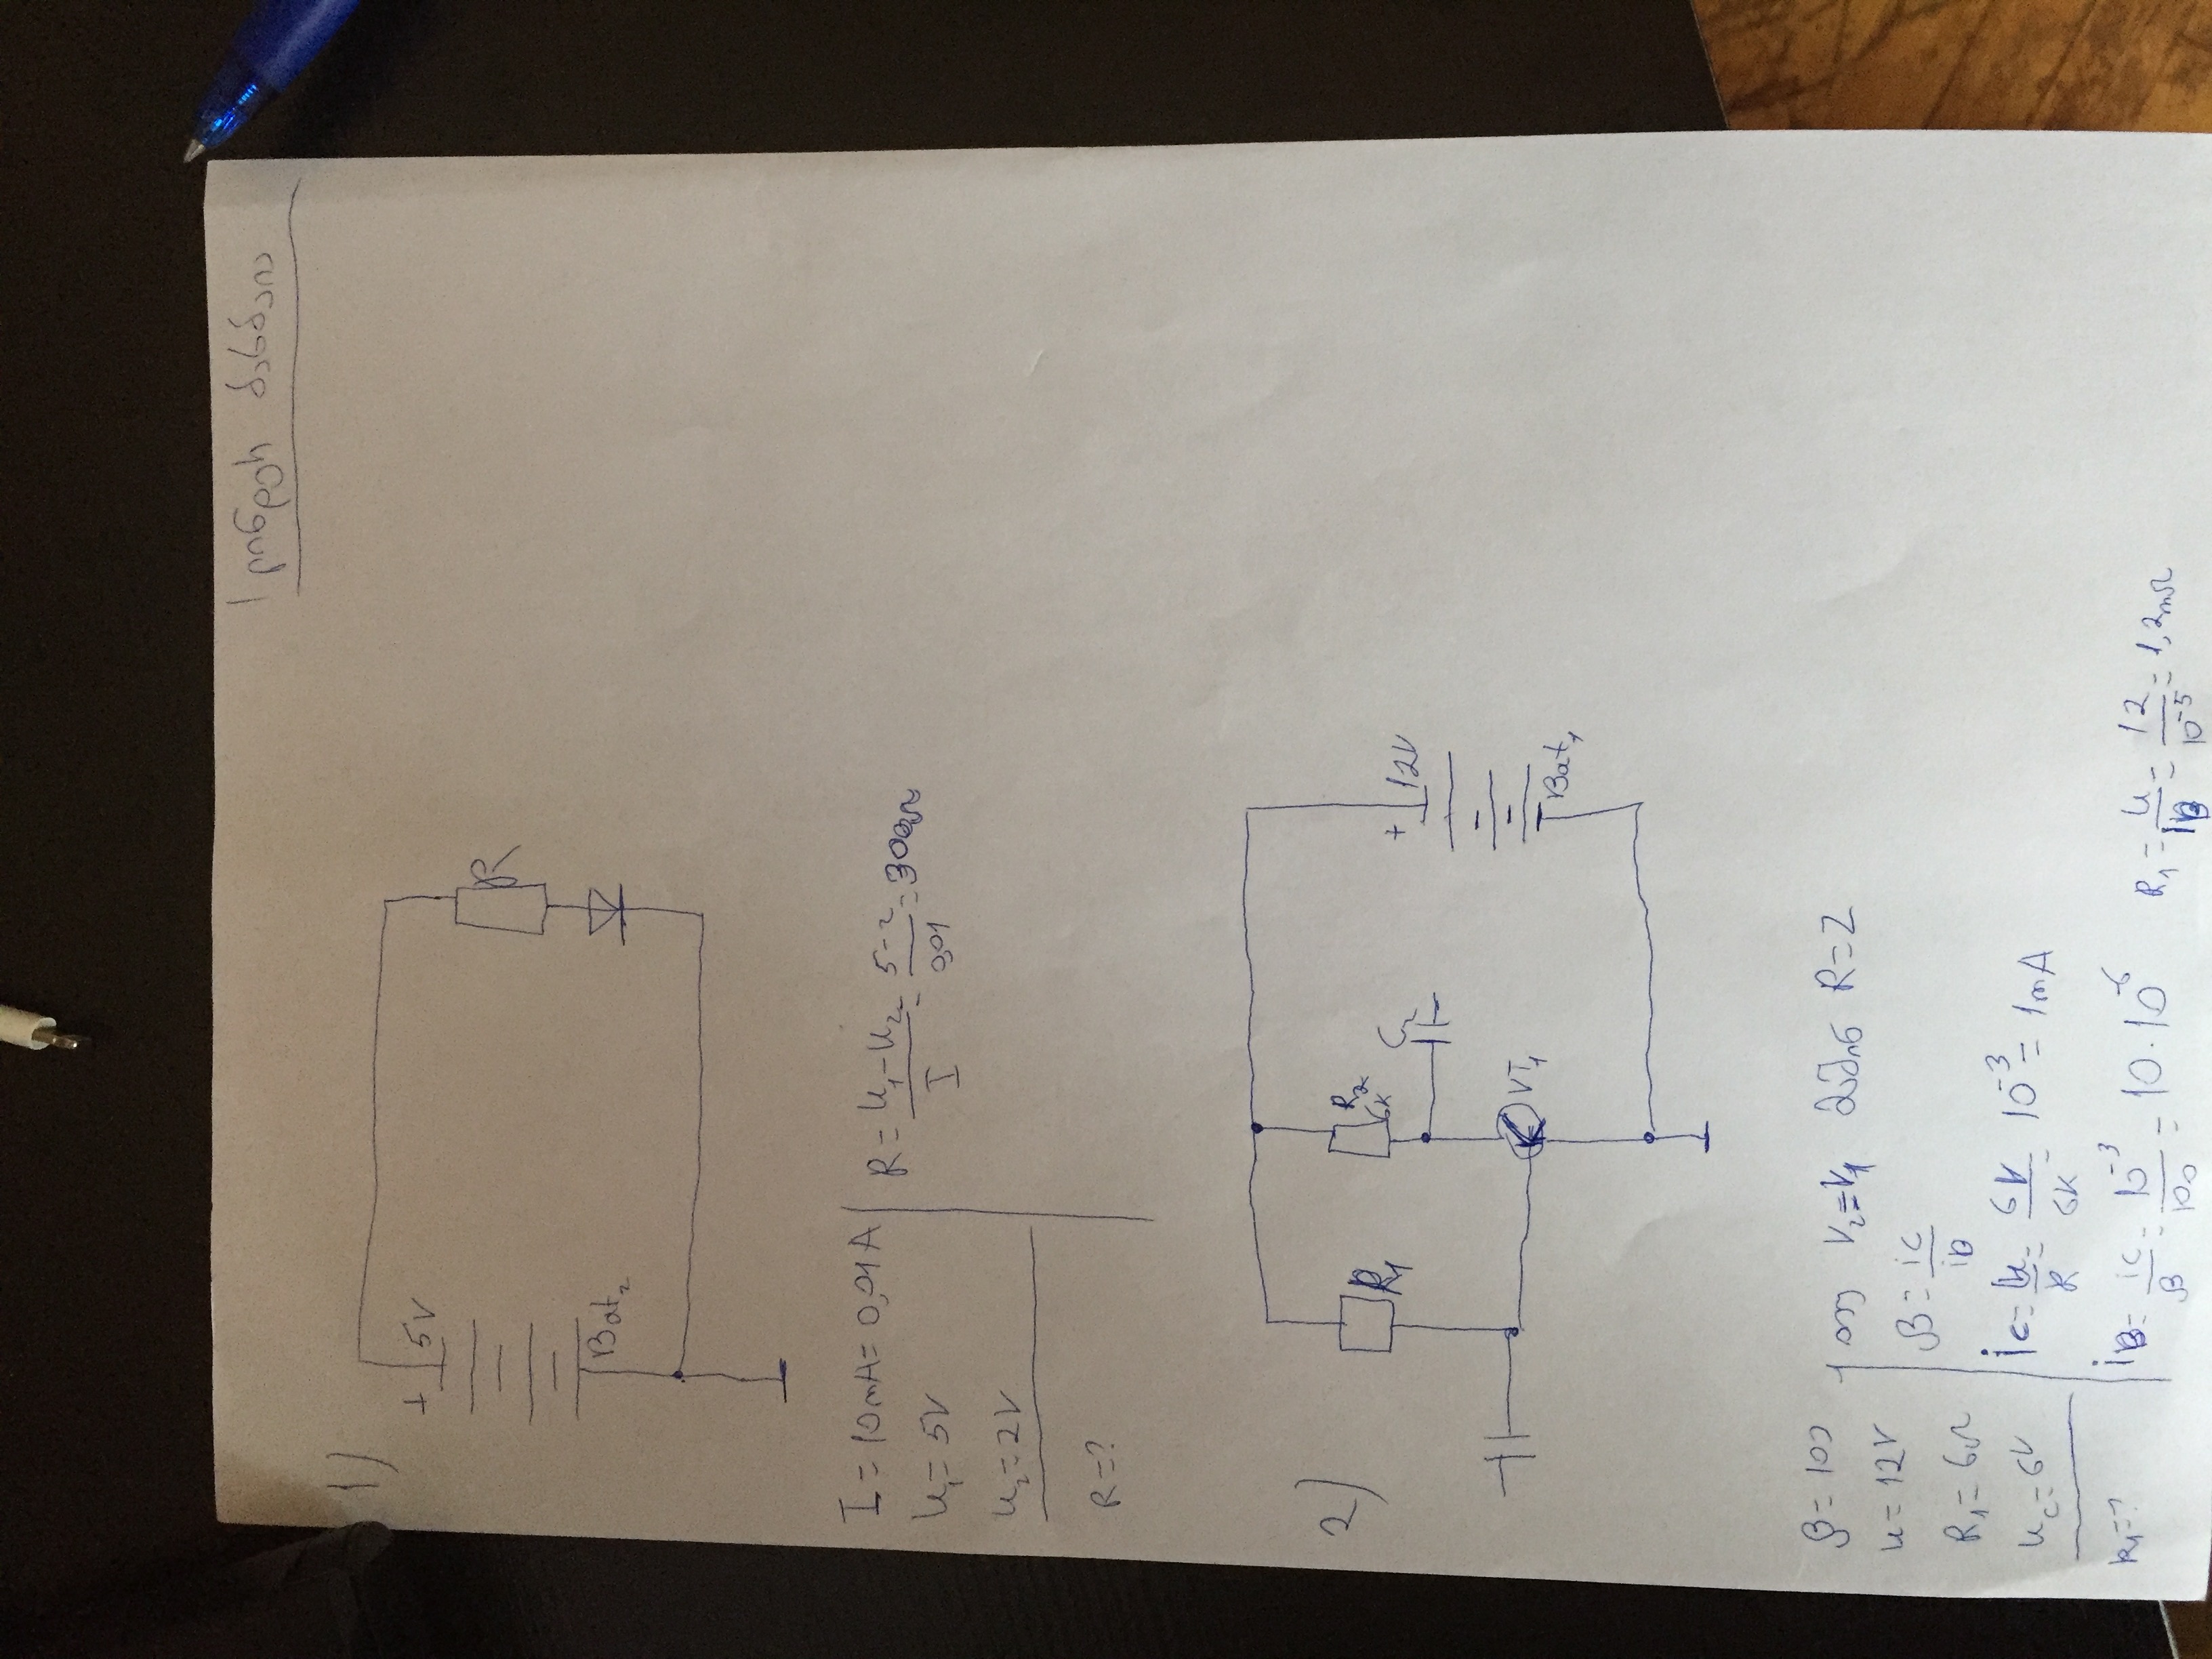 ლინდერ ბახბაია
1)
+ 5V
R
Bat₂
I = 10mA = 0,01A
U₁ = 5V
U₂ = 2V
R = ?
R = U₁-U₂ / I = 5-2 / 0,01 = 300Ω
2)
R₁
R₂
6K
C₂
+ 12V
VT₁
Bat₁
β = 100
U = 12V
R₁ = 6Ω
U_C = 6V
R₁ = ?
თუ V₂ = V₁ მაშინ R = 2
β = ic / iB
ic = U / R = 6V / 6K = 10⁻³ = 1mA
iB = ic / β = 10⁻³ / 100 = 10·10⁻⁶
R₁ = U / iB = 12 / 10⁻⁵ = 1,2mΩ